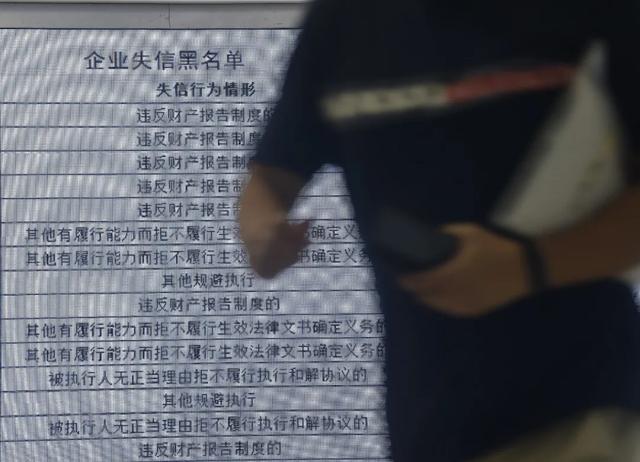 企业失信黑名单
失信行为情形
违反财产报告制度的
违反财产报告制度
违反财产报告制
违反财产报告
违反财产报
其他有履行能力而拒不履行生效 书确定义务
其他有履行能力而拒不履行生 书确定义务
其他规避执行
违反财产报告制度的
其他有履行能力而拒不履行生效法律文书确定义务的
其他有履行能力而拒不履行生效法律文书确定义务的
被执行人无正当理由拒不履行执行和解协议的
其他规避执行
被执行人无正当理由拒不履行执行和解协议的
违反财产报告制度的